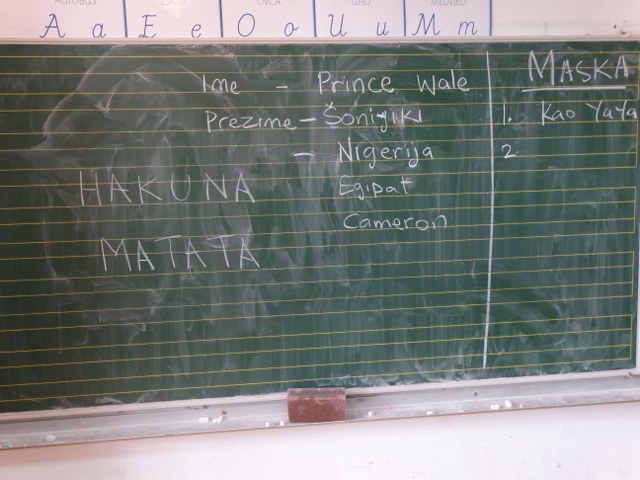 AUTOBUS ESKIM OVCA UHO MEDVJED
A a E e O o U u M m
Ime - Prince Wale
Prezime - Šonijiki
- Nigerija
Egipat
Cameron
HAKUNA
MATATA
MASKA
1. Kao YaYa
2.